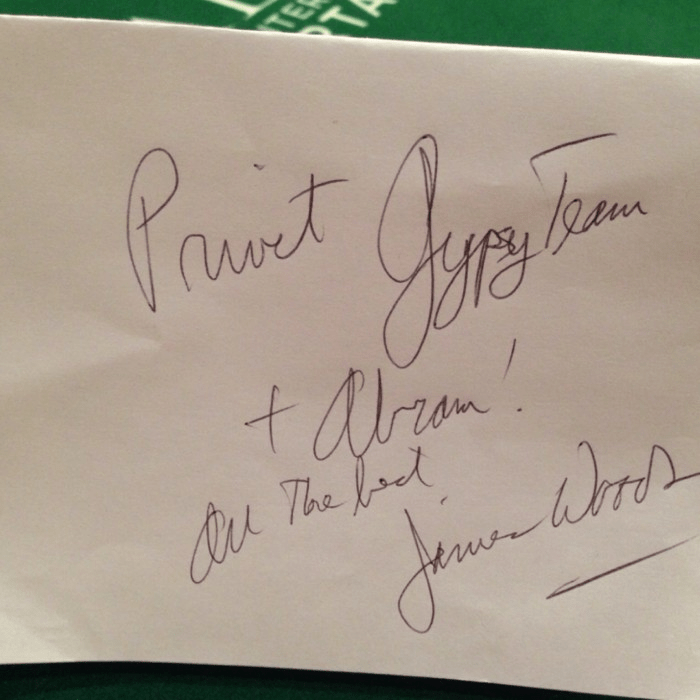 TER
PTA
Privet GypsyTeam
+ Abram!
All The best
James Woods